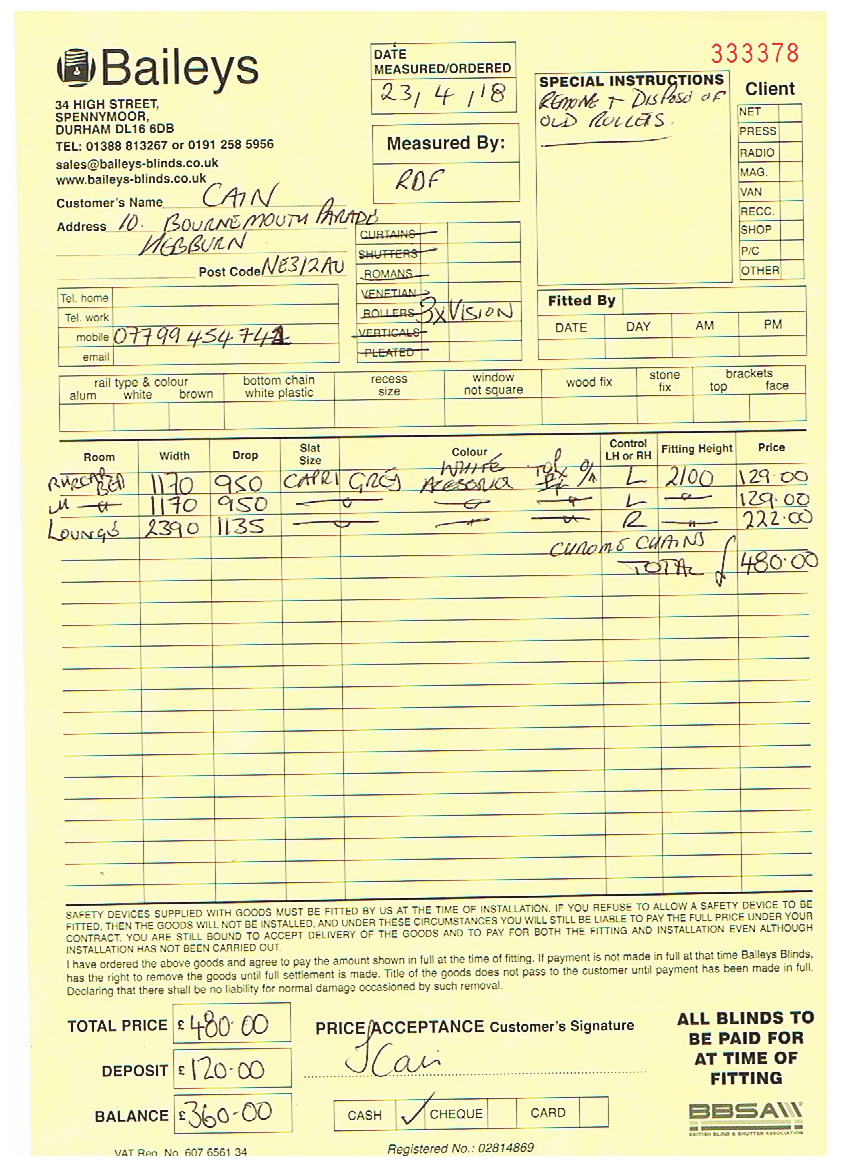 333378
Baileys
34 HIGH STREET,
SPENNYMOOR,
DURHAM DL16 6DB
TEL: 01388 813267 or 0191 258 5956
sales@baileys-blinds.co.uk
www.baileys-blinds.co.uk
Customer's Name CAIN
Address 10. BOURNEMOUTH PARADE
HEBBURN
Post Code NE31 2AU
Tel. home
Tel. work
mobile 07799 454 742
email
DATE
MEASURED/ORDERED
23/4/18
Measured By:
RDF
CURTAINS
SHUTTERS
ROMANS
VENETIAN
ROLLERS 3xVISION
VERTICALS
PLEATED
SPECIAL INSTRUCTIONS
REMOVE + DISPOSE OF
OLD ROLLERS.
Client
NET
PRESS
RADIO
MAG.
VAN
RECC.
SHOP
P/C
OTHER
Fitted By
DATE DAY AM PM
rail type & colour
alum white brown
bottom chain
white plastic
recess
size
window
not square
wood fix
stone
fix
brackets
top face
Room Width Drop Slat Size Colour Control LH or RH Fitting Height Price
BED 1170 950 CAPRI GREY WHITE L 2100 129.00
1170 950 L 129.00
LOUNGE 2390 1135 R 222.00
CHROME CHAINS
TOTAL £ 480.00
SAFETY DEVICES SUPPLIED WITH GOODS MUST BE FITTED BY US AT THE TIME OF INSTALLATION. IF YOU REFUSE TO ALLOW A SAFETY DEVICE TO BE
FITTED, THEN THE GOODS WILL NOT BE INSTALLED, AND UNDER THESE CIRCUMSTANCES YOU WILL STILL BE LIABLE TO PAY THE FULL PRICE UNDER YOUR
CONTRACT. YOU ARE STILL BOUND TO ACCEPT DELIVERY OF THE GOODS AND TO PAY FOR BOTH THE FITTING AND INSTALLATION EVEN ALTHOUGH
INSTALLATION HAS NOT BEEN CARRIED OUT.
I have ordered the above goods and agree to pay the amount shown in full at the time of fitting. If payment is not made in full at that time Baileys Blinds,
has the right to remove the goods until full settlement is made. Title of the goods does not pass to the customer until payment has been made in full.
Declaring that there shall be no liability for normal damage occasioned by such removal.
TOTAL PRICE £480.00
DEPOSIT £120.00
BALANCE £360.00
PRICE ACCEPTANCE Customer's Signature
J Cain
CASH ✓ CHEQUE CARD
ALL BLINDS TO
BE PAID FOR
AT TIME OF
FITTING
BBSA
BRITISH BLIND & SHUTTER ASSOCIATION
VAT Reg. No. 607 6561 34
Registered No.: 02814869